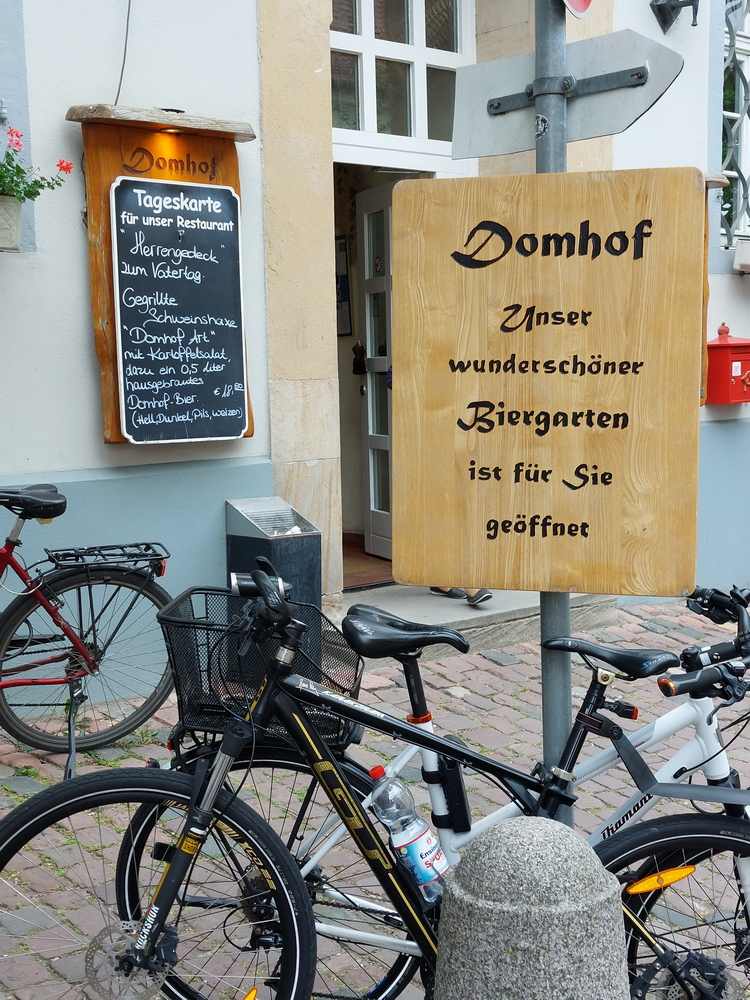 Domhof
Tageskarte
für unser Restaurant
"Herrengedeck"
zum Vatertag.
Gegrillte
Schweinshaxe
"Domhof Art"
mit Kartoffelsalat,
dazu ein 0,5 Liter
hausgebrautes
Domhof-Bier. €18,00
(Hell, Dunkel, Pils, Weizen)
Domhof
Unser
wunderschöner
Biergarten
ist für Sie
geöffnet
Diamant
ROCKSHOX